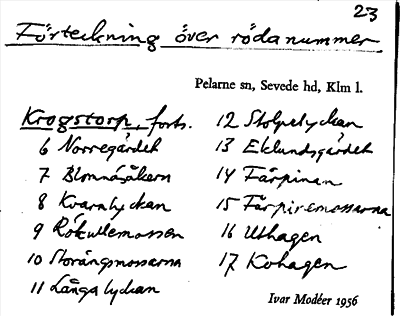 23
Förteckning över röda nummer
Pelarne sn, Sevede hd, Klm l.
Krogstorp, forts.
6 Norregärdet
7 Blomnäsåkern
8 Kvarnlyckan
9 Rökullemossen
10 Storängsmossarna
11 Långa lyckan
12 Stolpelyckan
13 Eklundsgärdet
14 Färpinan
15 Färpinemossarna
16 Uthagen
17 Kohagen
Ivar Modéer 1956